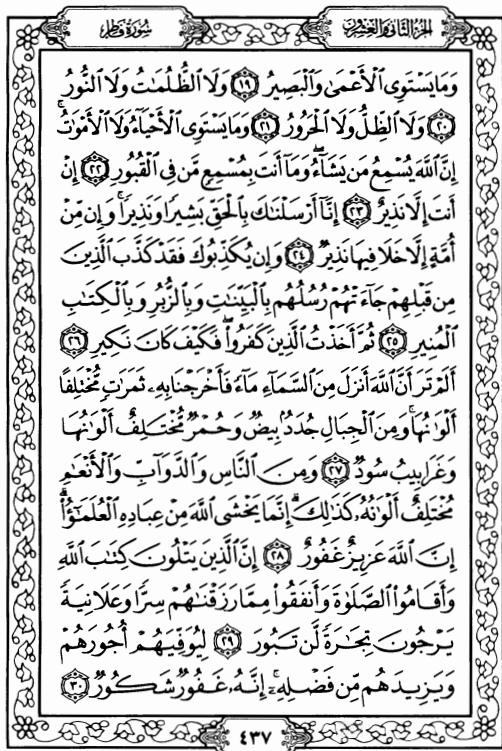 سُورَةُ فَاطِرٍ
الجُزْءُ الثَّانِي وَالْعِشْرُونَ
وَمَا يَسْتَوِي الْأَعْمَىٰ وَالْبَصِيرُ ۝١٩ وَلَا الظُّلُمَٰتُ وَلَا النُّورُ
۝٢٠ وَلَا الظِّلُّ وَلَا الْحَرُورُ ۝٢١ وَمَا يَسْتَوِي الْأَحْيَاءُ وَلَا الْأَمْوَٰتُ ۚ
إِنَّ اللَّهَ يُسْمِعُ مَن يَشَاءُ ۖ وَمَا أَنتَ بِمُسْمِعٍ مَّن فِي الْقُبُورِ ۝٢٢ إِنْ
أَنتَ إِلَّا نَذِيرٌ ۝٢٣ إِنَّا أَرْسَلْنَٰكَ بِالْحَقِّ بَشِيرًا وَنَذِيرًا ۚ وَإِن مِّنْ
أُمَّةٍ إِلَّا خَلَا فِيهَا نَذِيرٌ ۝٢٤ وَإِن يُكَذِّبُوكَ فَقَدْ كَذَّبَ الَّذِينَ
مِن قَبْلِهِمْ جَاءَتْهُمْ رُسُلُهُم بِالْبَيِّنَٰتِ وَبِالزُّبُرِ وَبِالْكِتَٰبِ
الْمُنِيرِ ۝٢٥ ثُمَّ أَخَذْتُ الَّذِينَ كَفَرُوا ۖ فَكَيْفَ كَانَ نَكِيرِ ۝٢٦
أَلَمْ تَرَ أَنَّ اللَّهَ أَنزَلَ مِنَ السَّمَاءِ مَاءً فَأَخْرَجْنَا بِهِۦ ثَمَرَٰتٍ مُّخْتَلِفًا
أَلْوَٰنُهَا ۚ وَمِنَ الْجِبَالِ جُدَدٌ بِيضٌ وَحُمْرٌ مُّخْتَلِفٌ أَلْوَٰنُهَا
وَغَرَابِيبُ سُودٌ ۝٢٧ وَمِنَ النَّاسِ وَالدَّوَابِّ وَالْأَنْعَٰمِ
مُخْتَلِفٌ أَلْوَٰنُهُۥ كَذَٰلِكَ ۗ إِنَّمَا يَخْشَى اللَّهَ مِنْ عِبَادِهِ الْعُلَمَٰٓؤُا ۗ
إِنَّ اللَّهَ عَزِيزٌ غَفُورٌ ۝٢٨ إِنَّ الَّذِينَ يَتْلُونَ كِتَٰبَ اللَّهِ
وَأَقَامُوا الصَّلَوٰةَ وَأَنفَقُوا مِمَّا رَزَقْنَٰهُمْ سِرًّا وَعَلَانِيَةً
يَرْجُونَ تِجَٰرَةً لَّن تَبُورَ ۝٢٩ لِيُوَفِّيَهُمْ أُجُورَهُمْ
وَيَزِيدَهُم مِّن فَضْلِهِۦ ۚ إِنَّهُۥ غَفُورٌ شَكُورٌ ۝٣٠
٤٣٧